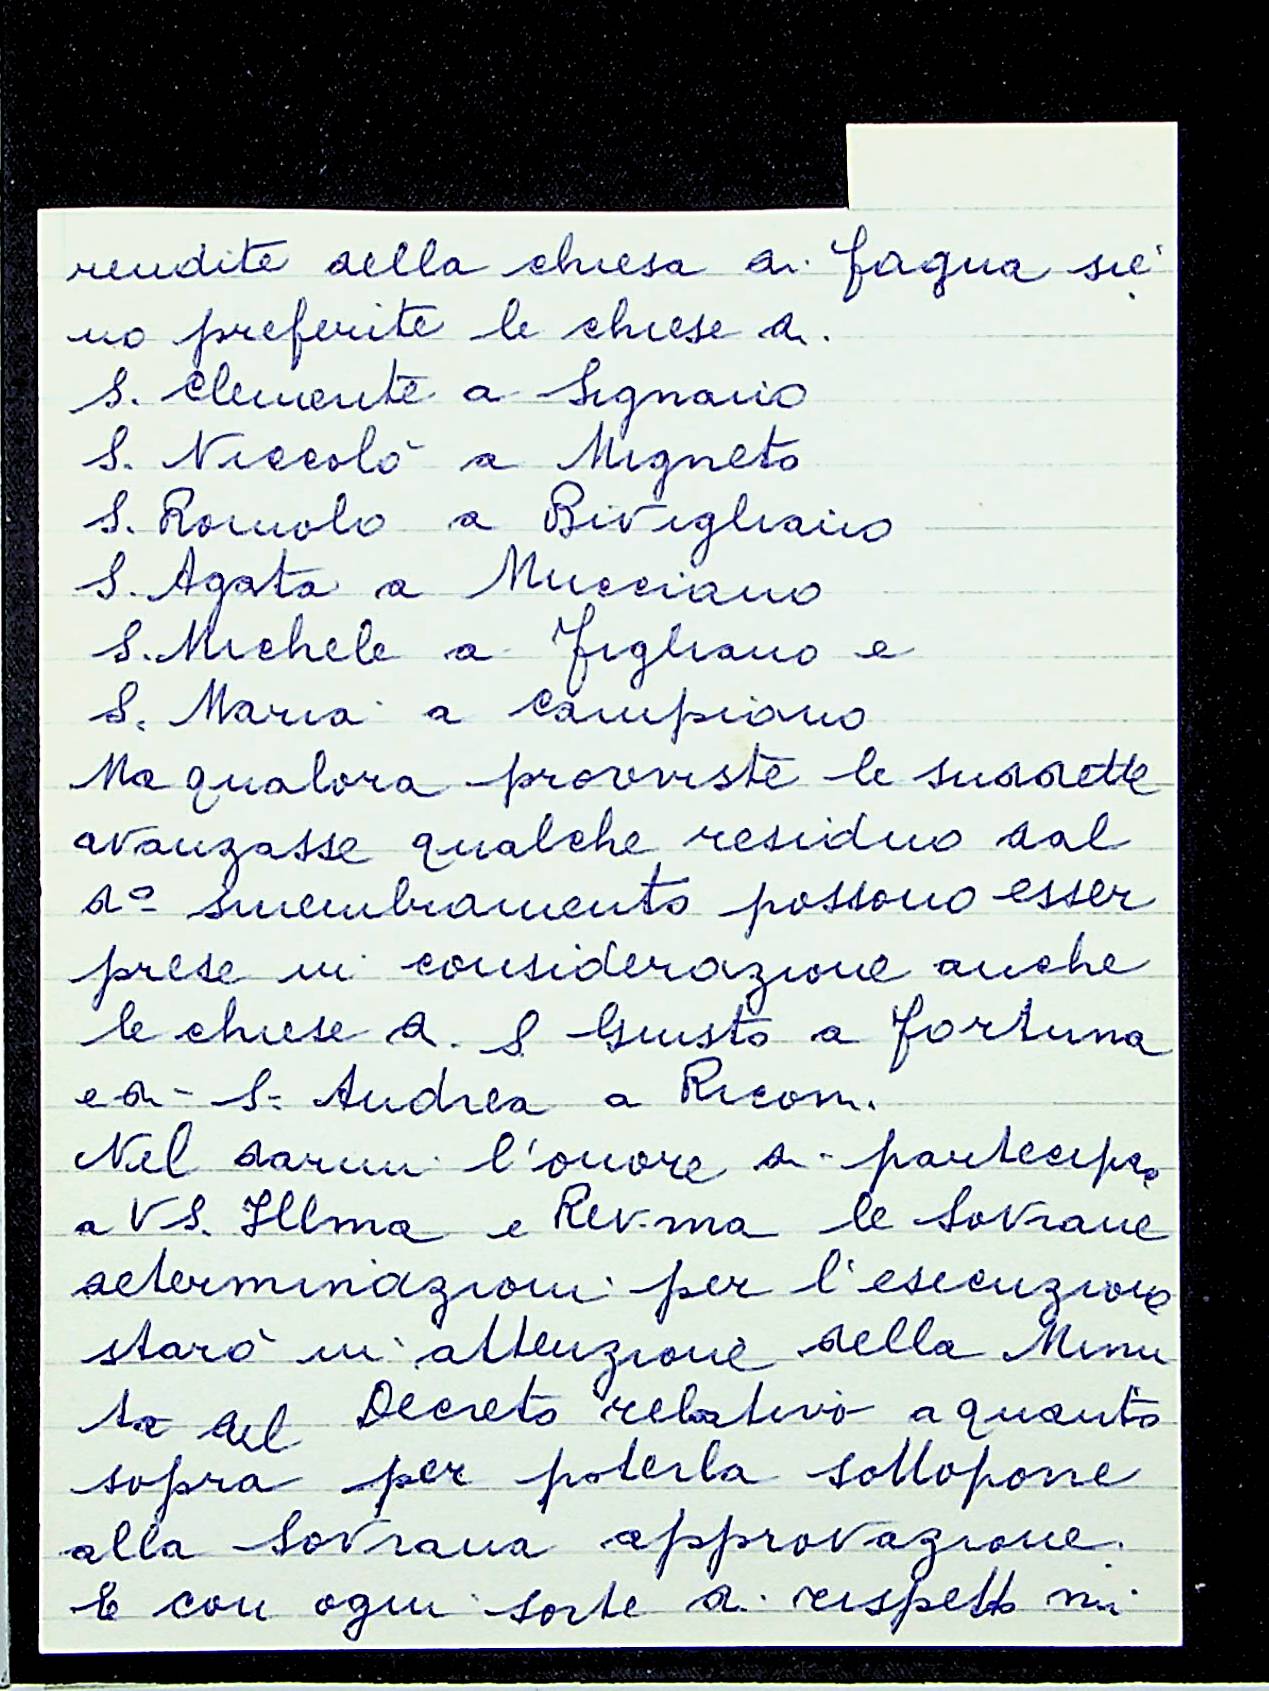 rendite della chiesa di Fagna sie
no preferite le chiese di.
S. Clemente a Signano
S. Niccolò a Migneto
S. Romolo a Bivigliano
S. Agata a Mucciano
S. Michele a Figliano e
S. Maria a Campiano
Ma qualora provviste le suddette
avanzasse qualche residuo dal
do smembramento possono esser
prese in considerazione anche
le chiese di S Giusto a Fortuna
e di S. Andrea a Riconi.
Nel darmi l'onore di partecipa
a VS. Illma e Rev.ma le Sovrane
determinazioni per l'esecuzione
starò in attenzione della Minu
ta del Decreto relativo a quanto
sopra per poterla sottoporre
alla Sovrana approvazione.
E con ogni sorte di rispetto mi